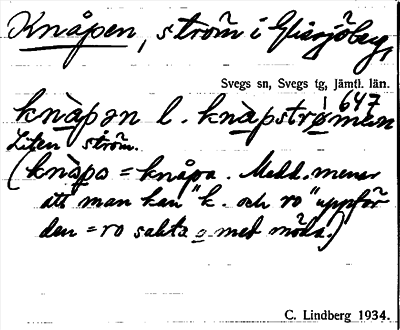 Knåpen, ström i Glissjöberg,
Svegs sn, Svegs tg, Jämtl. län.
647
knàpən l. knàpstrømən
Liten ström.
(knàpa = knåpa. Medd. menar
att man kan "k. och ro" uppför
den = ro sakta o med möda.)
C. Lindberg 1934.